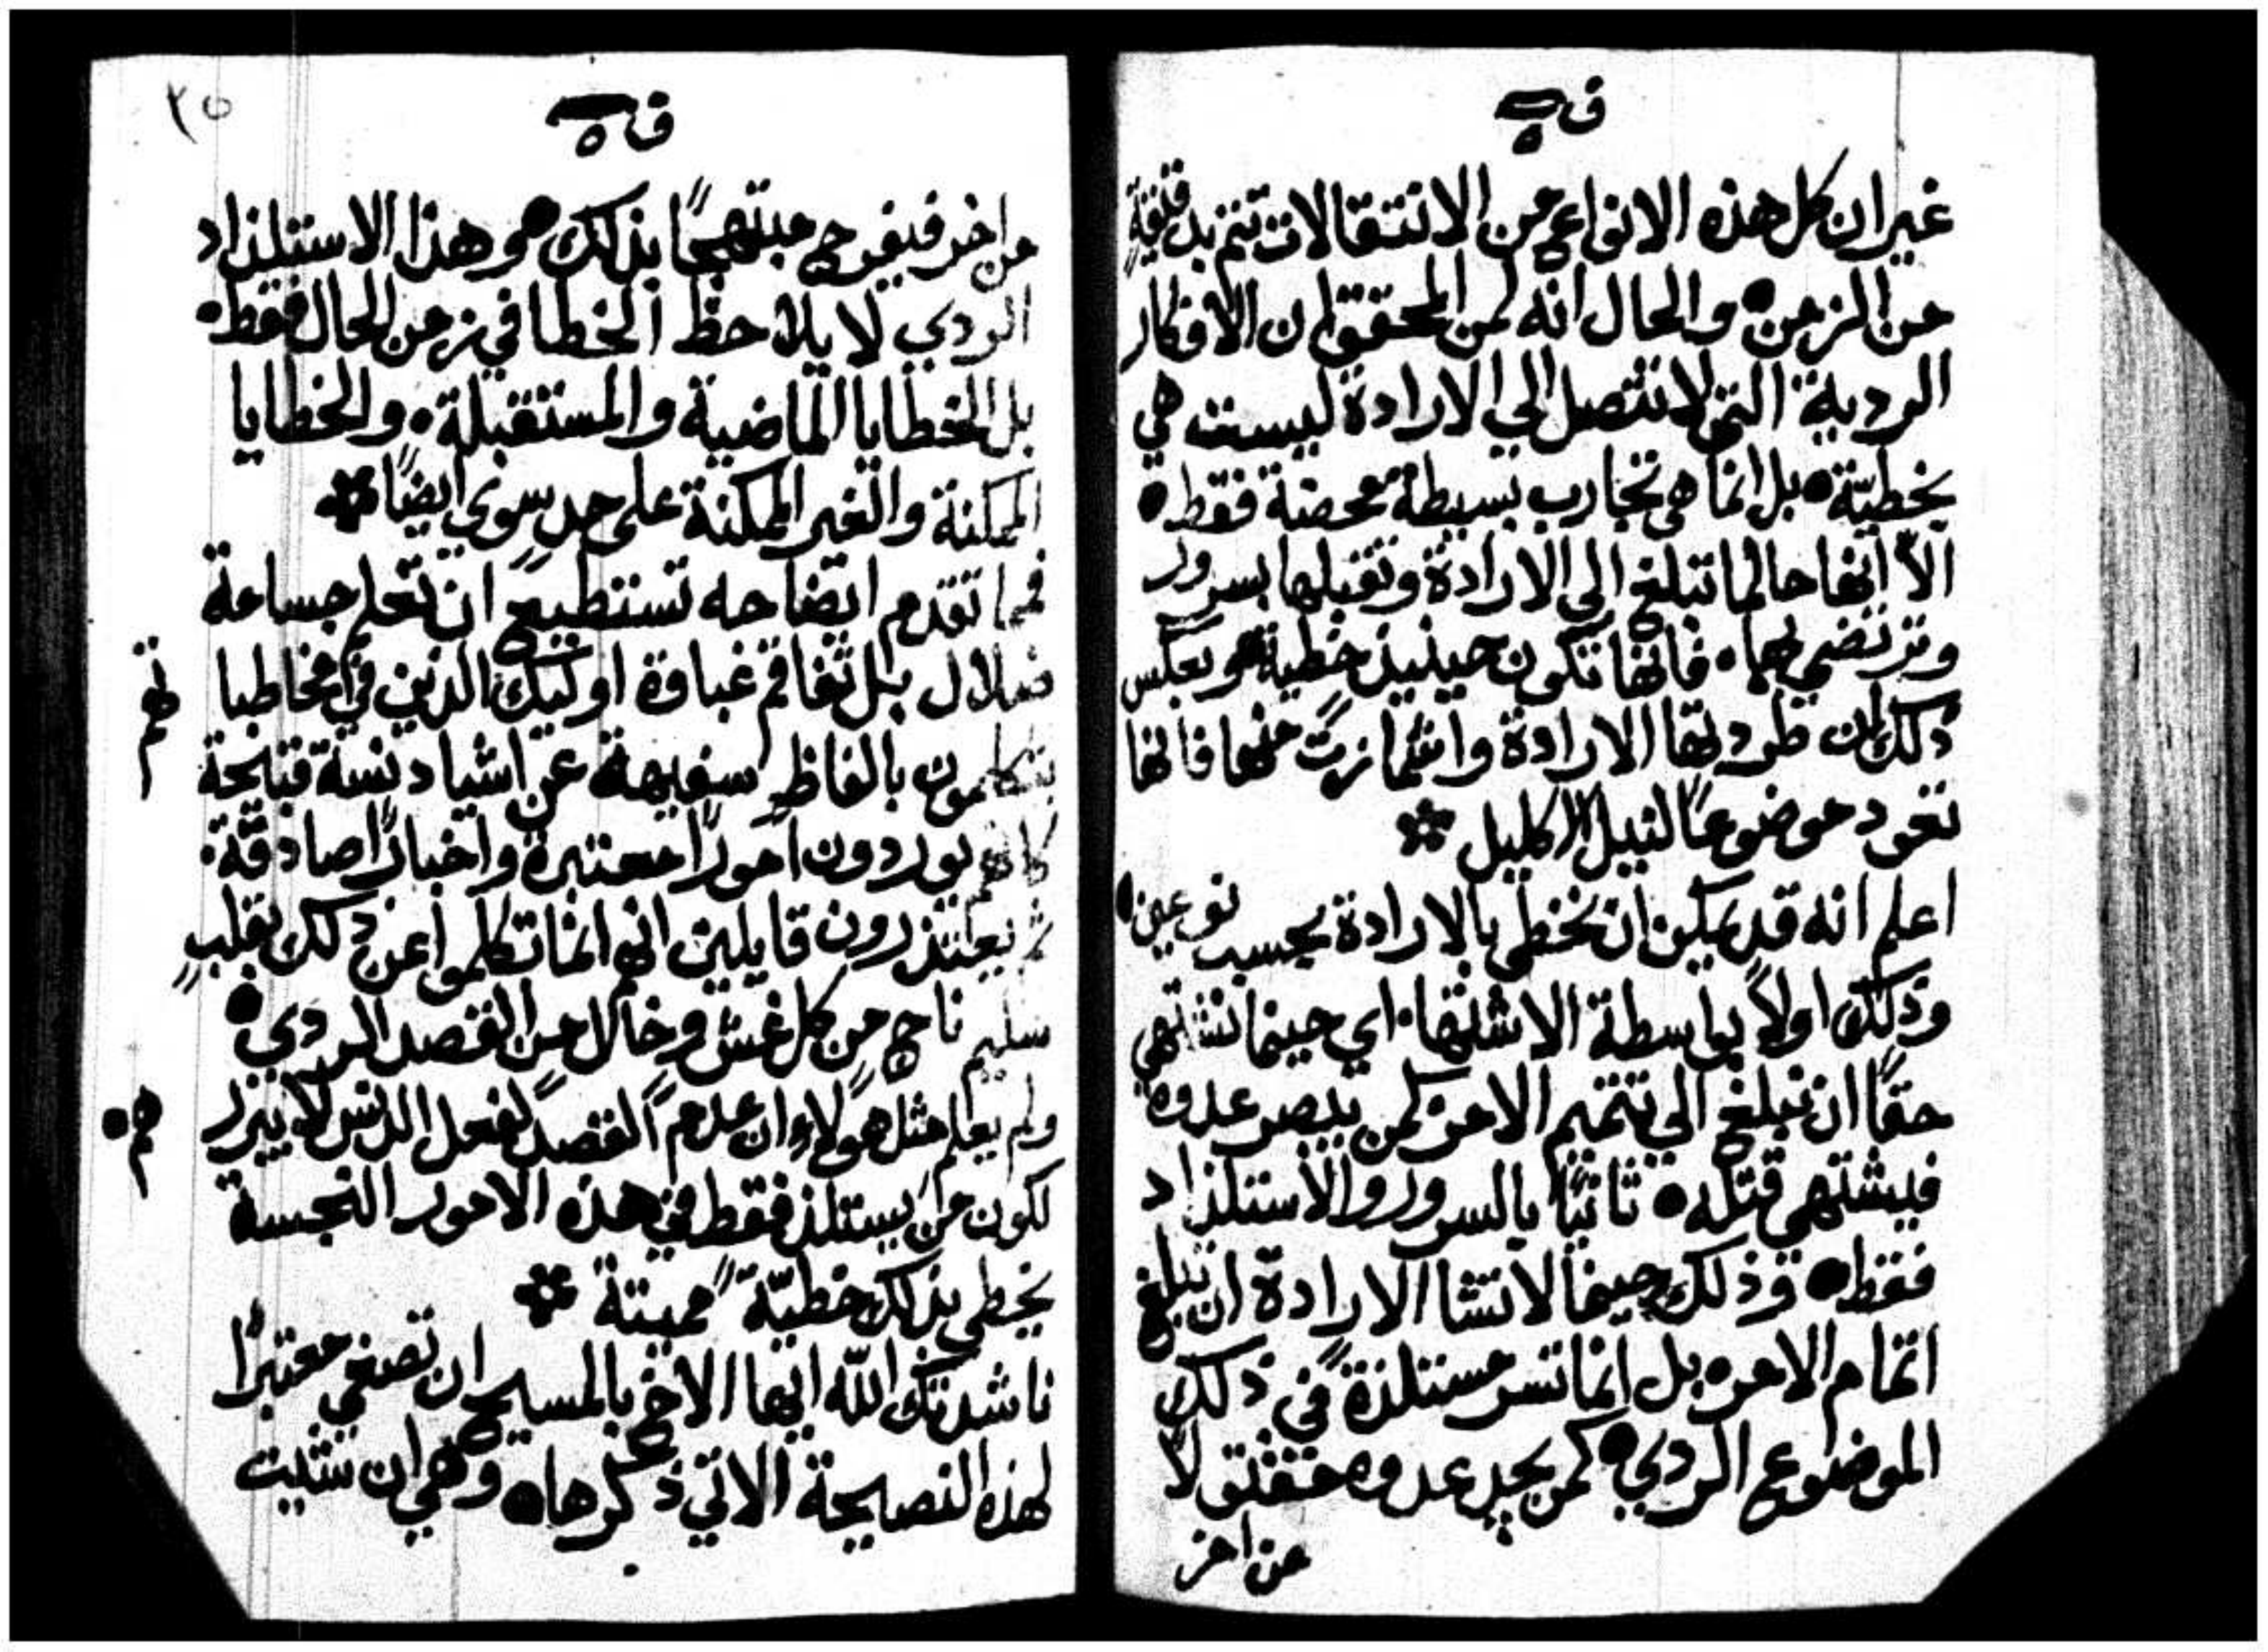 ف ٥
غير ان كل هذه الانواع من الانتقالات تتم بدقيقةٍ
من الزمن • والحال انه لمن المحقق ان الافكار
الردية التي لا تتصل الي الارادة ليست هي
بخطيّة • بل انما هي تجارب بسيطة محضة فقط •
الاّ انها حالما تبلغ الي الارادة وتقبلها بسرور
وترتضي بها • فانها تكون حينيذٍ خطية • وبعكس
ذلك ان طردتها الارادة واشمازت منها فانها
تعود موضوعاً لنيل الاكليل *
اعلم انه قد يمكن ان نخطي بالارادة بحسب نوعين •
وذلك اولاً بواسطة الاشتها • اي حينما نشتهي
حقاً ان نبلغ الي تتميم الامر • كمن يبصر عدوه
فيشتهي قتله • ثانياً بالسرور والاستلذاد
فقط • وذلك حينما لا تشا الارادة ان تبلغ
اتمام الامر • بل انما تسر مستلذةً في ذلك
الموضوع الردي • كمن يجد عدوه مقتولا
من اخر
٢٥
ف ٥
من اخر فيفرح مبتهجاً بذلك • وهذا الاستلذاد
الردي لا يلاحظ الخطا في زمن الحال فقط •
بل الخطايا الماضية والمستقبلة • والخطايا
الممكنة والغير الممكنة علي حدٍ سوي ايضاً *
فمما تقدم ايضاحه تستطيع ان تعلم جسامة
ضلال بل تفاقم غباوة اوليك الذين في مخاطبا
تهم
يتكلمون بالفاظٍ سفيهة عن اشيا دنسة قبيحة
كانهم يوردون اموراً معتبرة واخباراً صادقة •
ثم يعتذرون قايلين انهم انما تكلموا عن ذلك بقلبٍ
سليم ناجٍ من كل غش وخالٍ من القصد الردي •
ولم يعلم مثل هولاء ان عدم القصد لفعل الدنس لا يبرر
هم •
لكون من يستلذ فقط في هذه الامور النجسة
يخطي بذلك خطيّةً مميتة *
ناشدتك الله ايها الاخ بالمسيح ان تصغي معتبراً
لهذه النصيحة الاتي ذكرها • وهي ان شيت